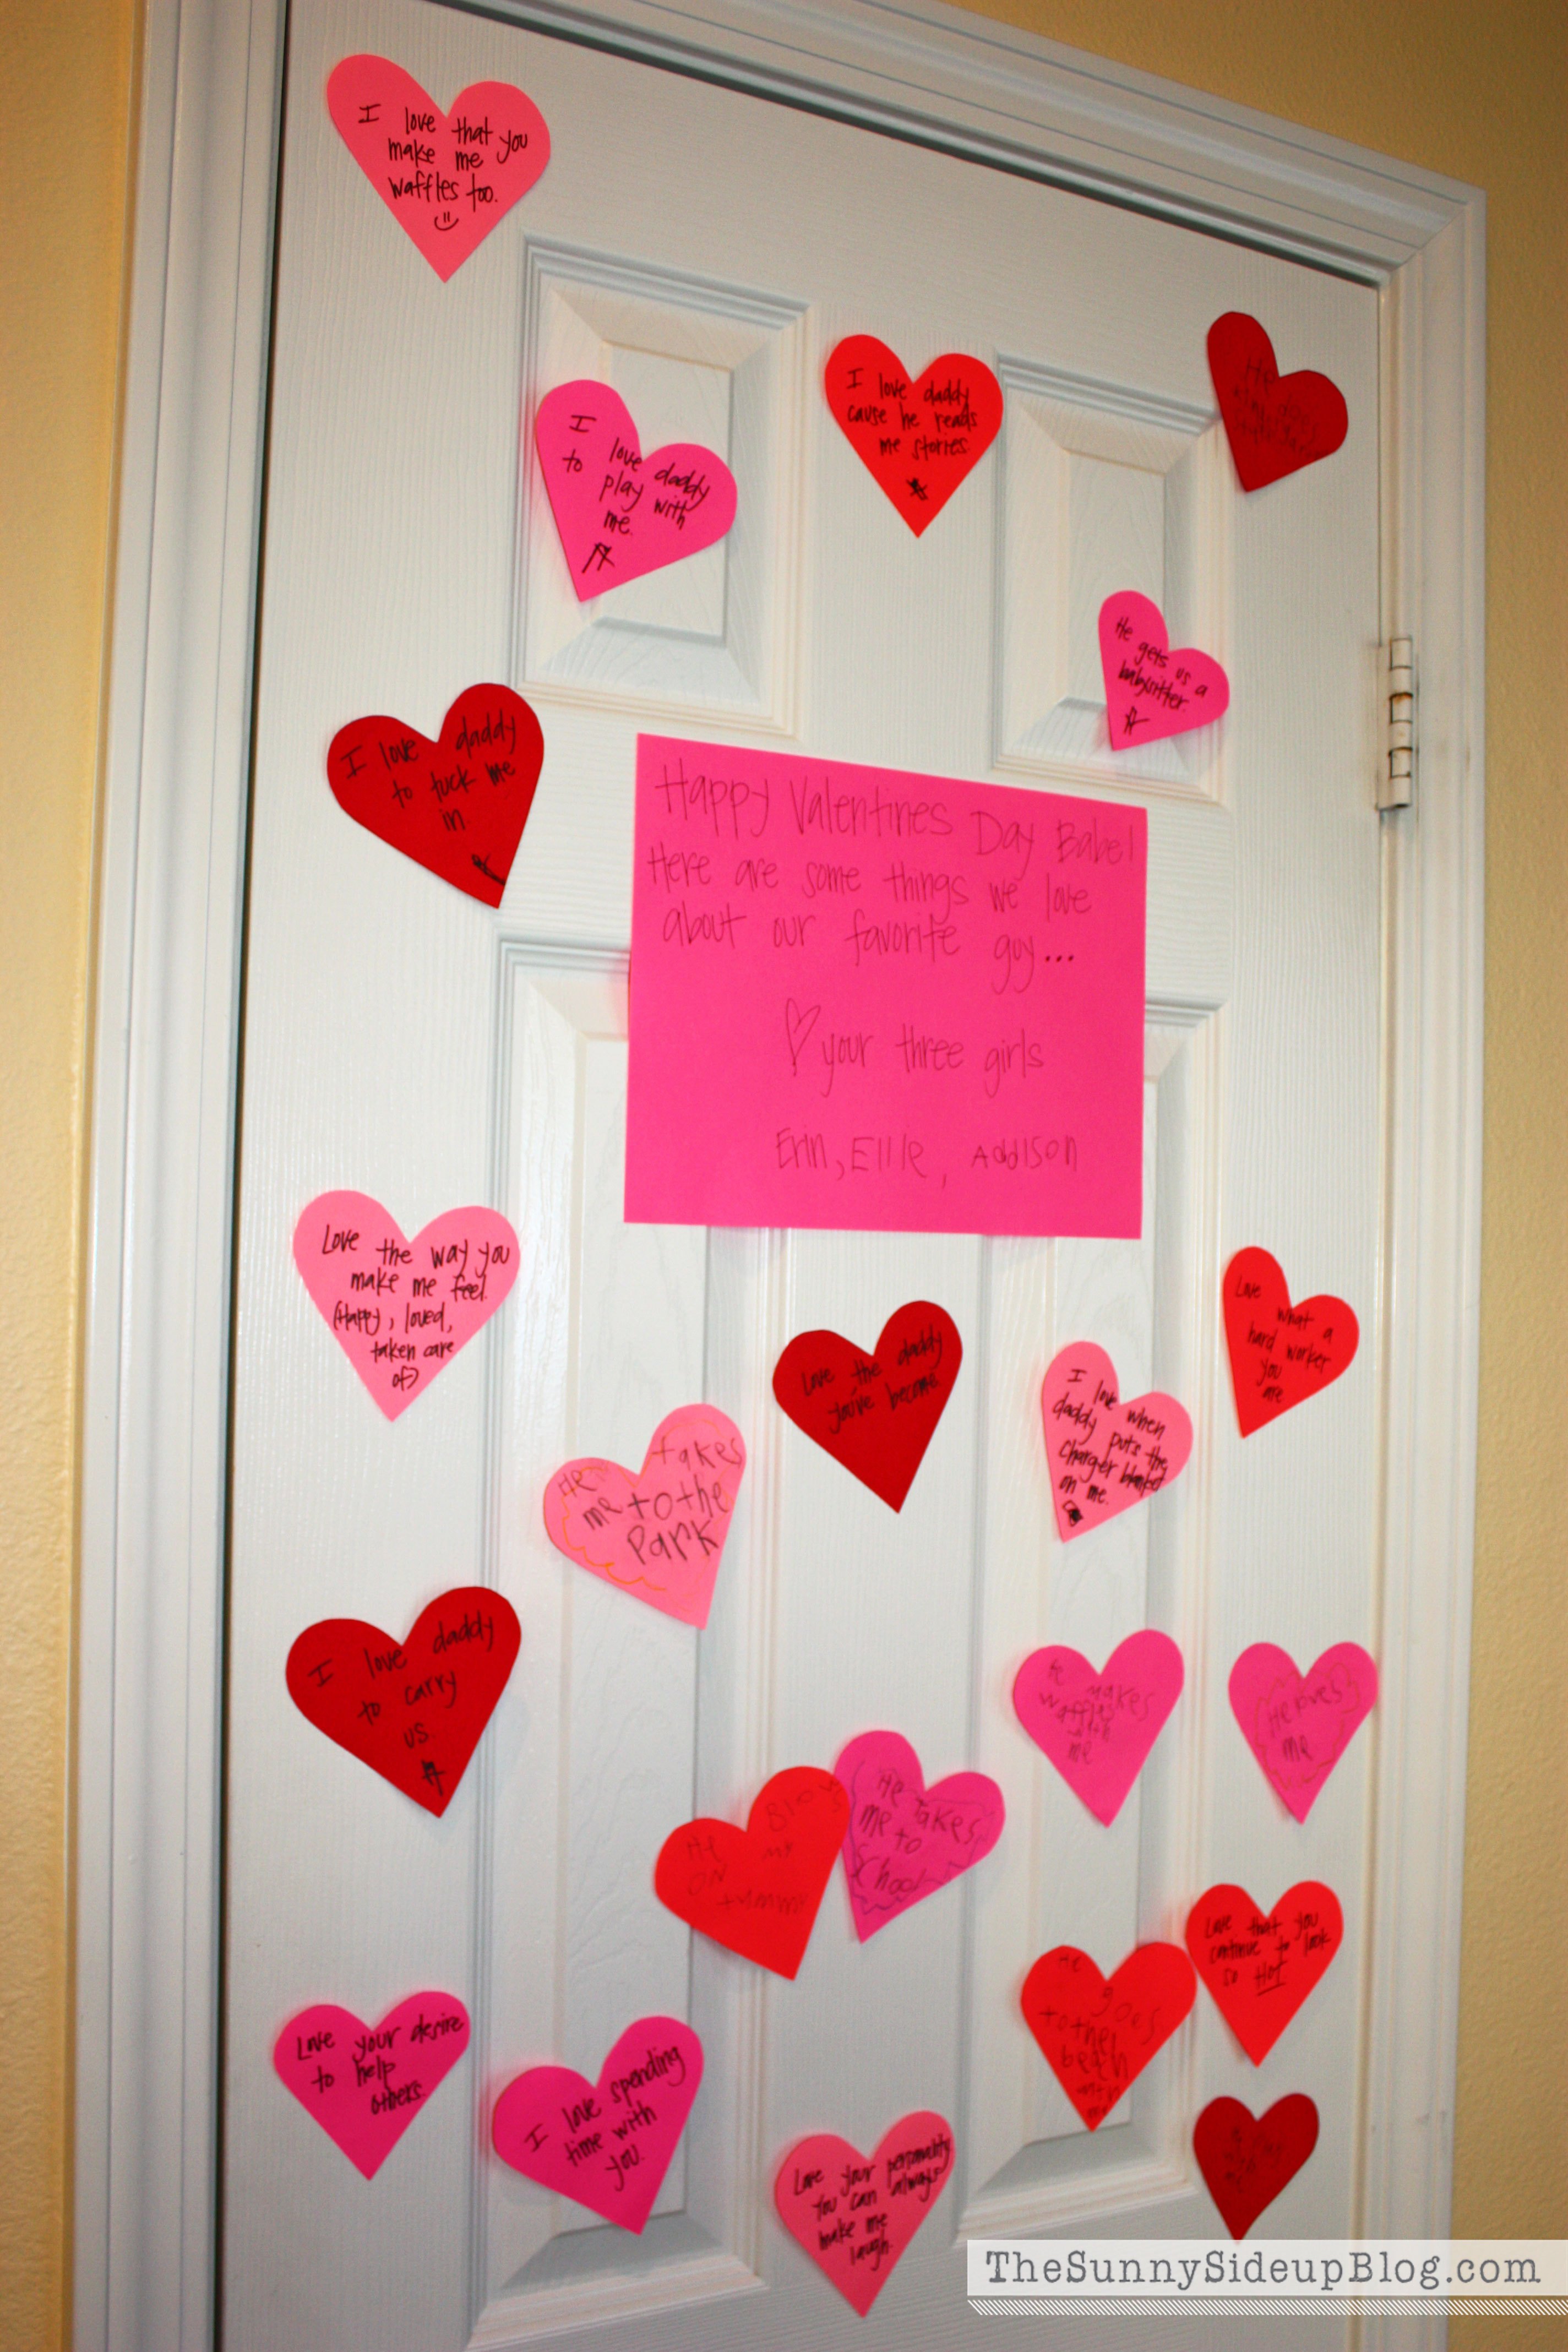 I love that you
make me
waffles too.
I love daddy
cause he reads
me stories.
He
I love daddy
to play with
me.
He gets us a
babysitter.
I love daddy
to tuck me
in
Happy Valentines Day Babe!
Here are some things we love
about our favorite guy...
your three girls
Erin, Elle, Addison
Love the way you
make me feel.
(Happy, loved,
taken care
of)
Love the daddy
you've become
Love what a
hard worker
you
are
I love when
daddy puts the
charger blanket
on me.
He takes
me to the
Park
I love daddy
to carry
us.
He makes
waffles
with
me
He loves
me
He Blows
ON my
tummy
He takes
me to
School
Love that you
continue to look
so HOT
He
goes
to the
beach
with
me
Love your desire
to help
others.
I love spending
time with
you.
Love your personality
You can always
make me
laugh.
TheSunnySideupBlog.com